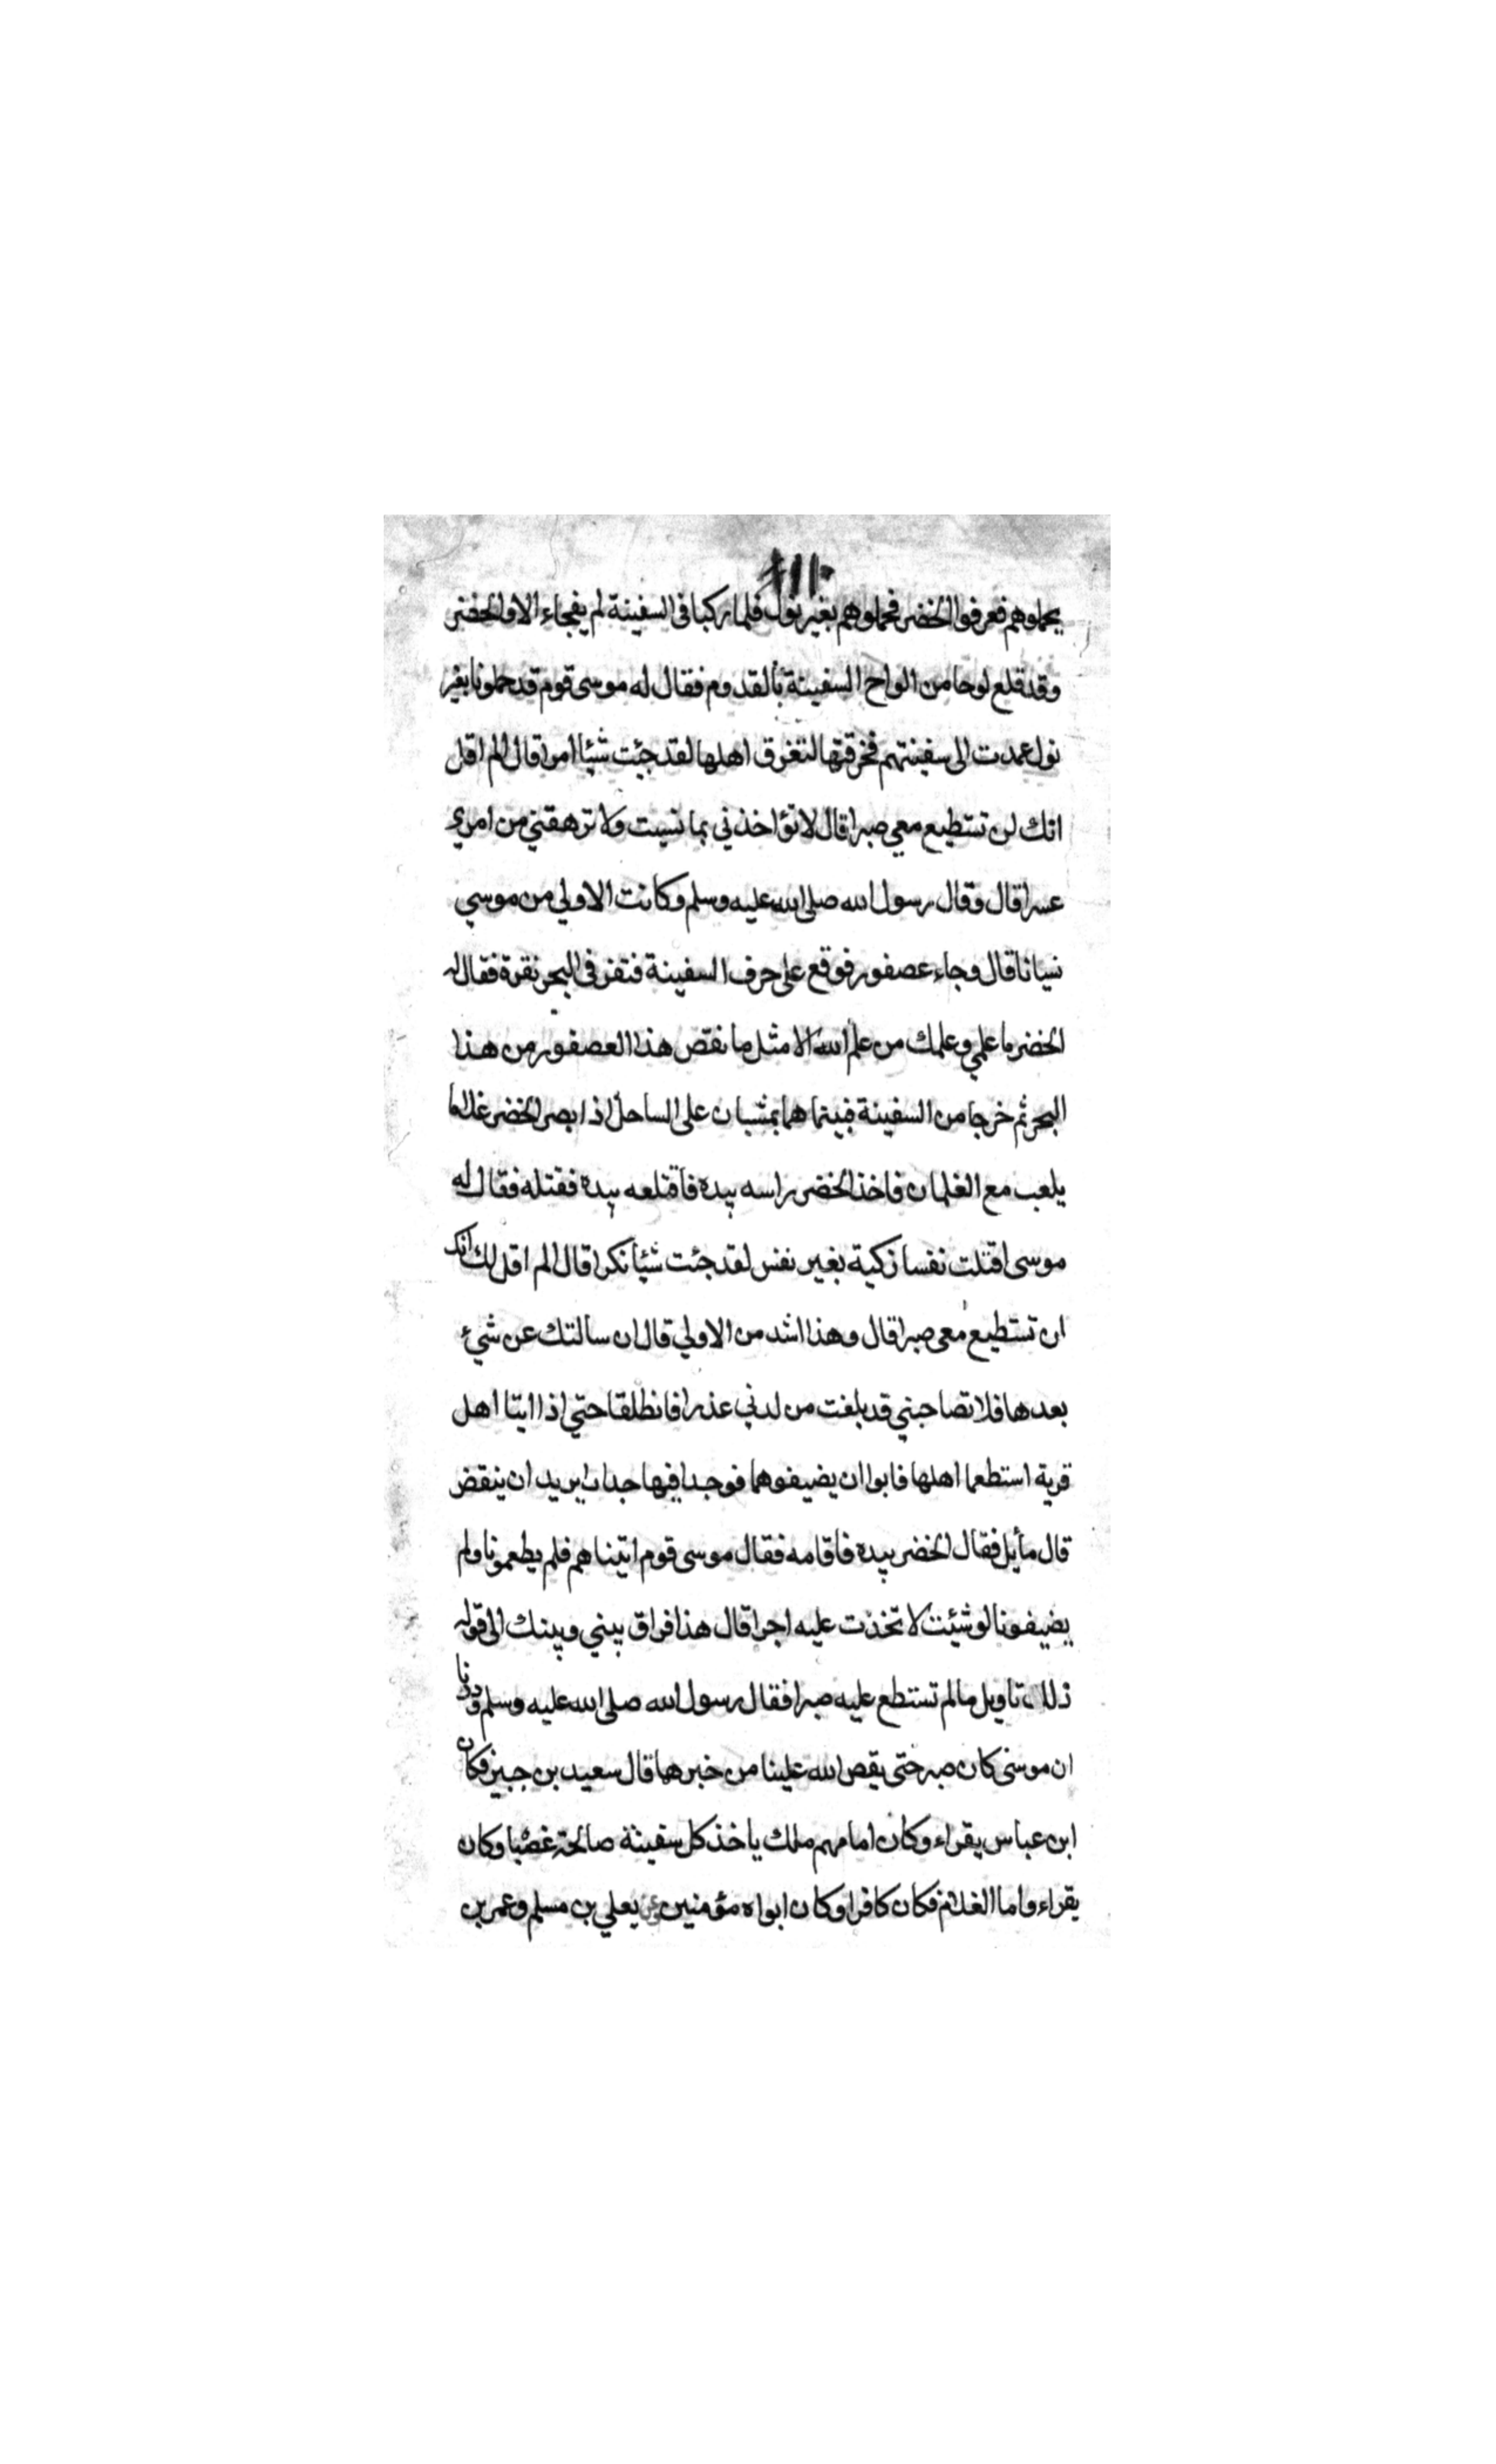 يحملوهم فعرفوا الخضر فحملوهم بغير نول فلما ركبا فى السفينة لم يفجاء الا والخضر
وقد قلع لوحا من الواح السفينة بالقدوم فقال له موسى قوم قد حملونا بغير
نول عمدت الى سفينتهم فخرقتها لتغرق اهلها لقد جئت شيئا امرا قال الم اقل
انك لن تستطيع معي صبرا قال لا تؤاخذني بما نسيت ولا ترهقني من امري
عسرا قال وقال رسول الله صلى الله عليه وسلم وكانت الاولي من موسي
نسيانا قال وجاء عصفور فوقع على حرف السفينة فنقر فى البحر نقرة فقال له
الخضر ما علمي وعلمك من علم الله الا مثل ما نقص هذا العصفور من هذا
البحر ثم خرجا من السفينة فبينما هما يمشيان على الساحل اذا بصر الخضر غلاما
يلعب مع الغلمان فاخذ الخضر راسه بيده فاقتلعه بيده فقتله فقال له
موسى اقتلت نفسا زكية بغير نفس لقد جئت شيئا نكرا قال الم اقل لك انك
ان تستطيع معى صبرا قال وهذا اشد من الاولي قال ان سالتك عن شيء
بعدها فلا تصاحبني قد بلغت من لدني عذرا فانطلقا حتي اذا اتيا اهل
قرية استطعما اهلها فابوا ان يضيفوهما فوجدا فيها جدارا يريد ان ينقض
قال مأيل فقال الخضر بيده فاقامه فقال موسى قوم اتيناهم فلم يطعمونا ولم
يضيفونا لو شئيت لاتخذت عليه اجرا قال هذا فراق بيني وبينك الى قوله
ذلك تاويل مالم تستطع عليه صبرا فقال رسول الله صلى الله عليه وسلم وددنا
ان موسى كان صبر حتى يقص الله علينا من خبرهما قال سعيد بن جبير فكان
ابن عباس يقراء وكان امامهم ملك ياخذ كل سفينة صالحة غصبا وكان
يقراء واما الغلام فكان كافرا وكان ابواه مؤمنين يعلي بن مسلم وعمر بن